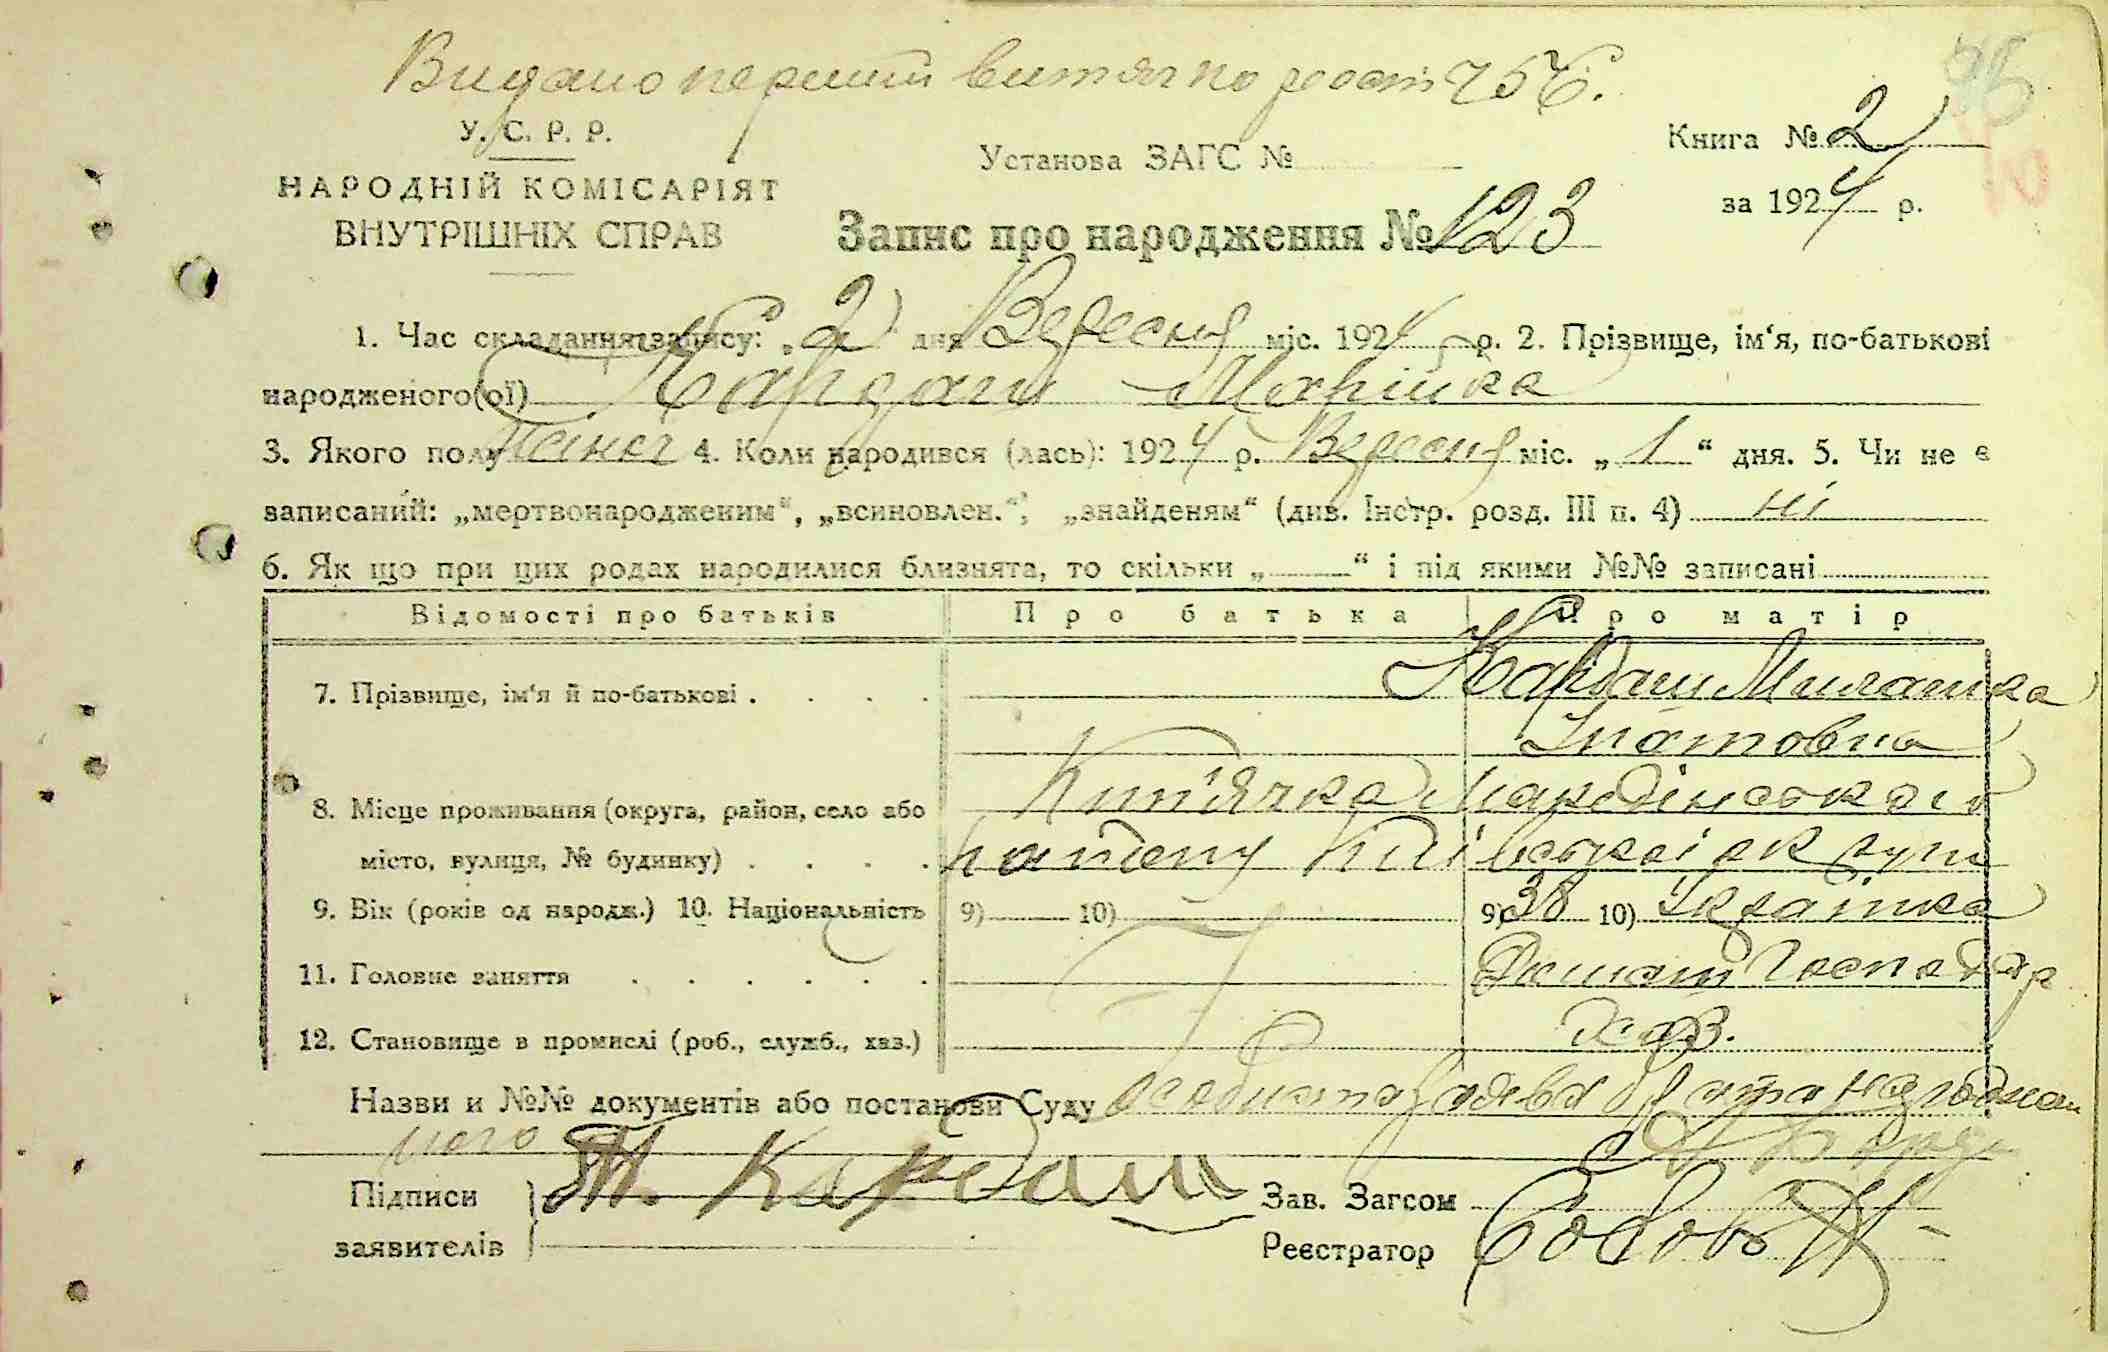 Видано перший витяг по реєст 756.
У. С. Р. Р.
НАРОДНІЙ КОМІСАРІЯТ
ВНУТРІШНІХ СПРАВ
Установа ЗАГС №
Книга № 2
за 1924 р.
Запис про народження № 123
1. Час складання запису: „2“ дня Вересня міс. 1924 р. 2. Прізвище, ім‘я, по-батькові
народженого(ої) Кардаш Марійка
3. Якого полу жіноч 4. Коли народився (лась): 1924 р. Вересня міс. „1“ дня. 5. Чи не є
записаний: „мертвонародженим“, „всиновлен.“, „знайденям“ (див. Інстр. розд. III п. 4) ні
6. Як що при цих родах народилися близнята, то скільки „ “ і під якими №№ записані
Відомості про батьків Про батька Про матір
7. Прізвище, ім‘я й по-батькові . . . . Кардаш Милашка
Ігнатовна
8. Місце проживання (округа, район, село або
місто, вулиця, № будинку) . . . . Київської округи
9. Вік (років од народж.) 10. Національність 9) 10) 9) 38 10) Українка
11. Головне заняття . . . . . Домашн Господар
12. Становище в промислі (роб., служб., хаз.) Хаз.
Назви и №№ документів або постанови Суду особиста заява брата народжен
ного
Підписи
заявителів
Т. Кардаш
Зав. Загсом
Реєстратор